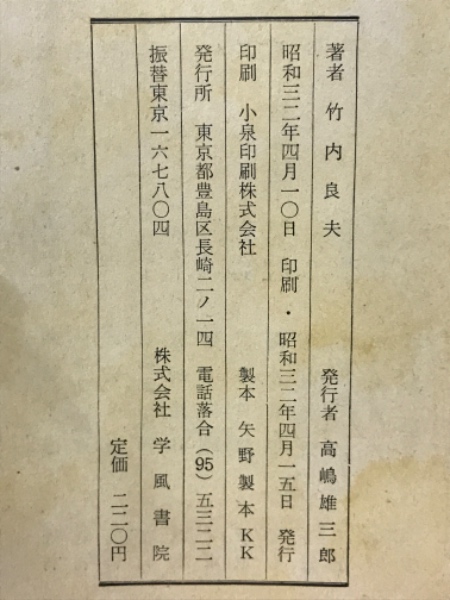 著者 竹内良夫 発行者 高嶋雄三郎
昭和三二年四月一〇日 印刷・昭和三二年四月一五日 発行
印刷 小泉印刷株式会社 製本 矢野製本KK
発行所 東京都豊島区長崎二ノ一四 電話落合(95)五三二二
振替東京一六七八〇四 株式会社 学風書院
定価 二二〇円